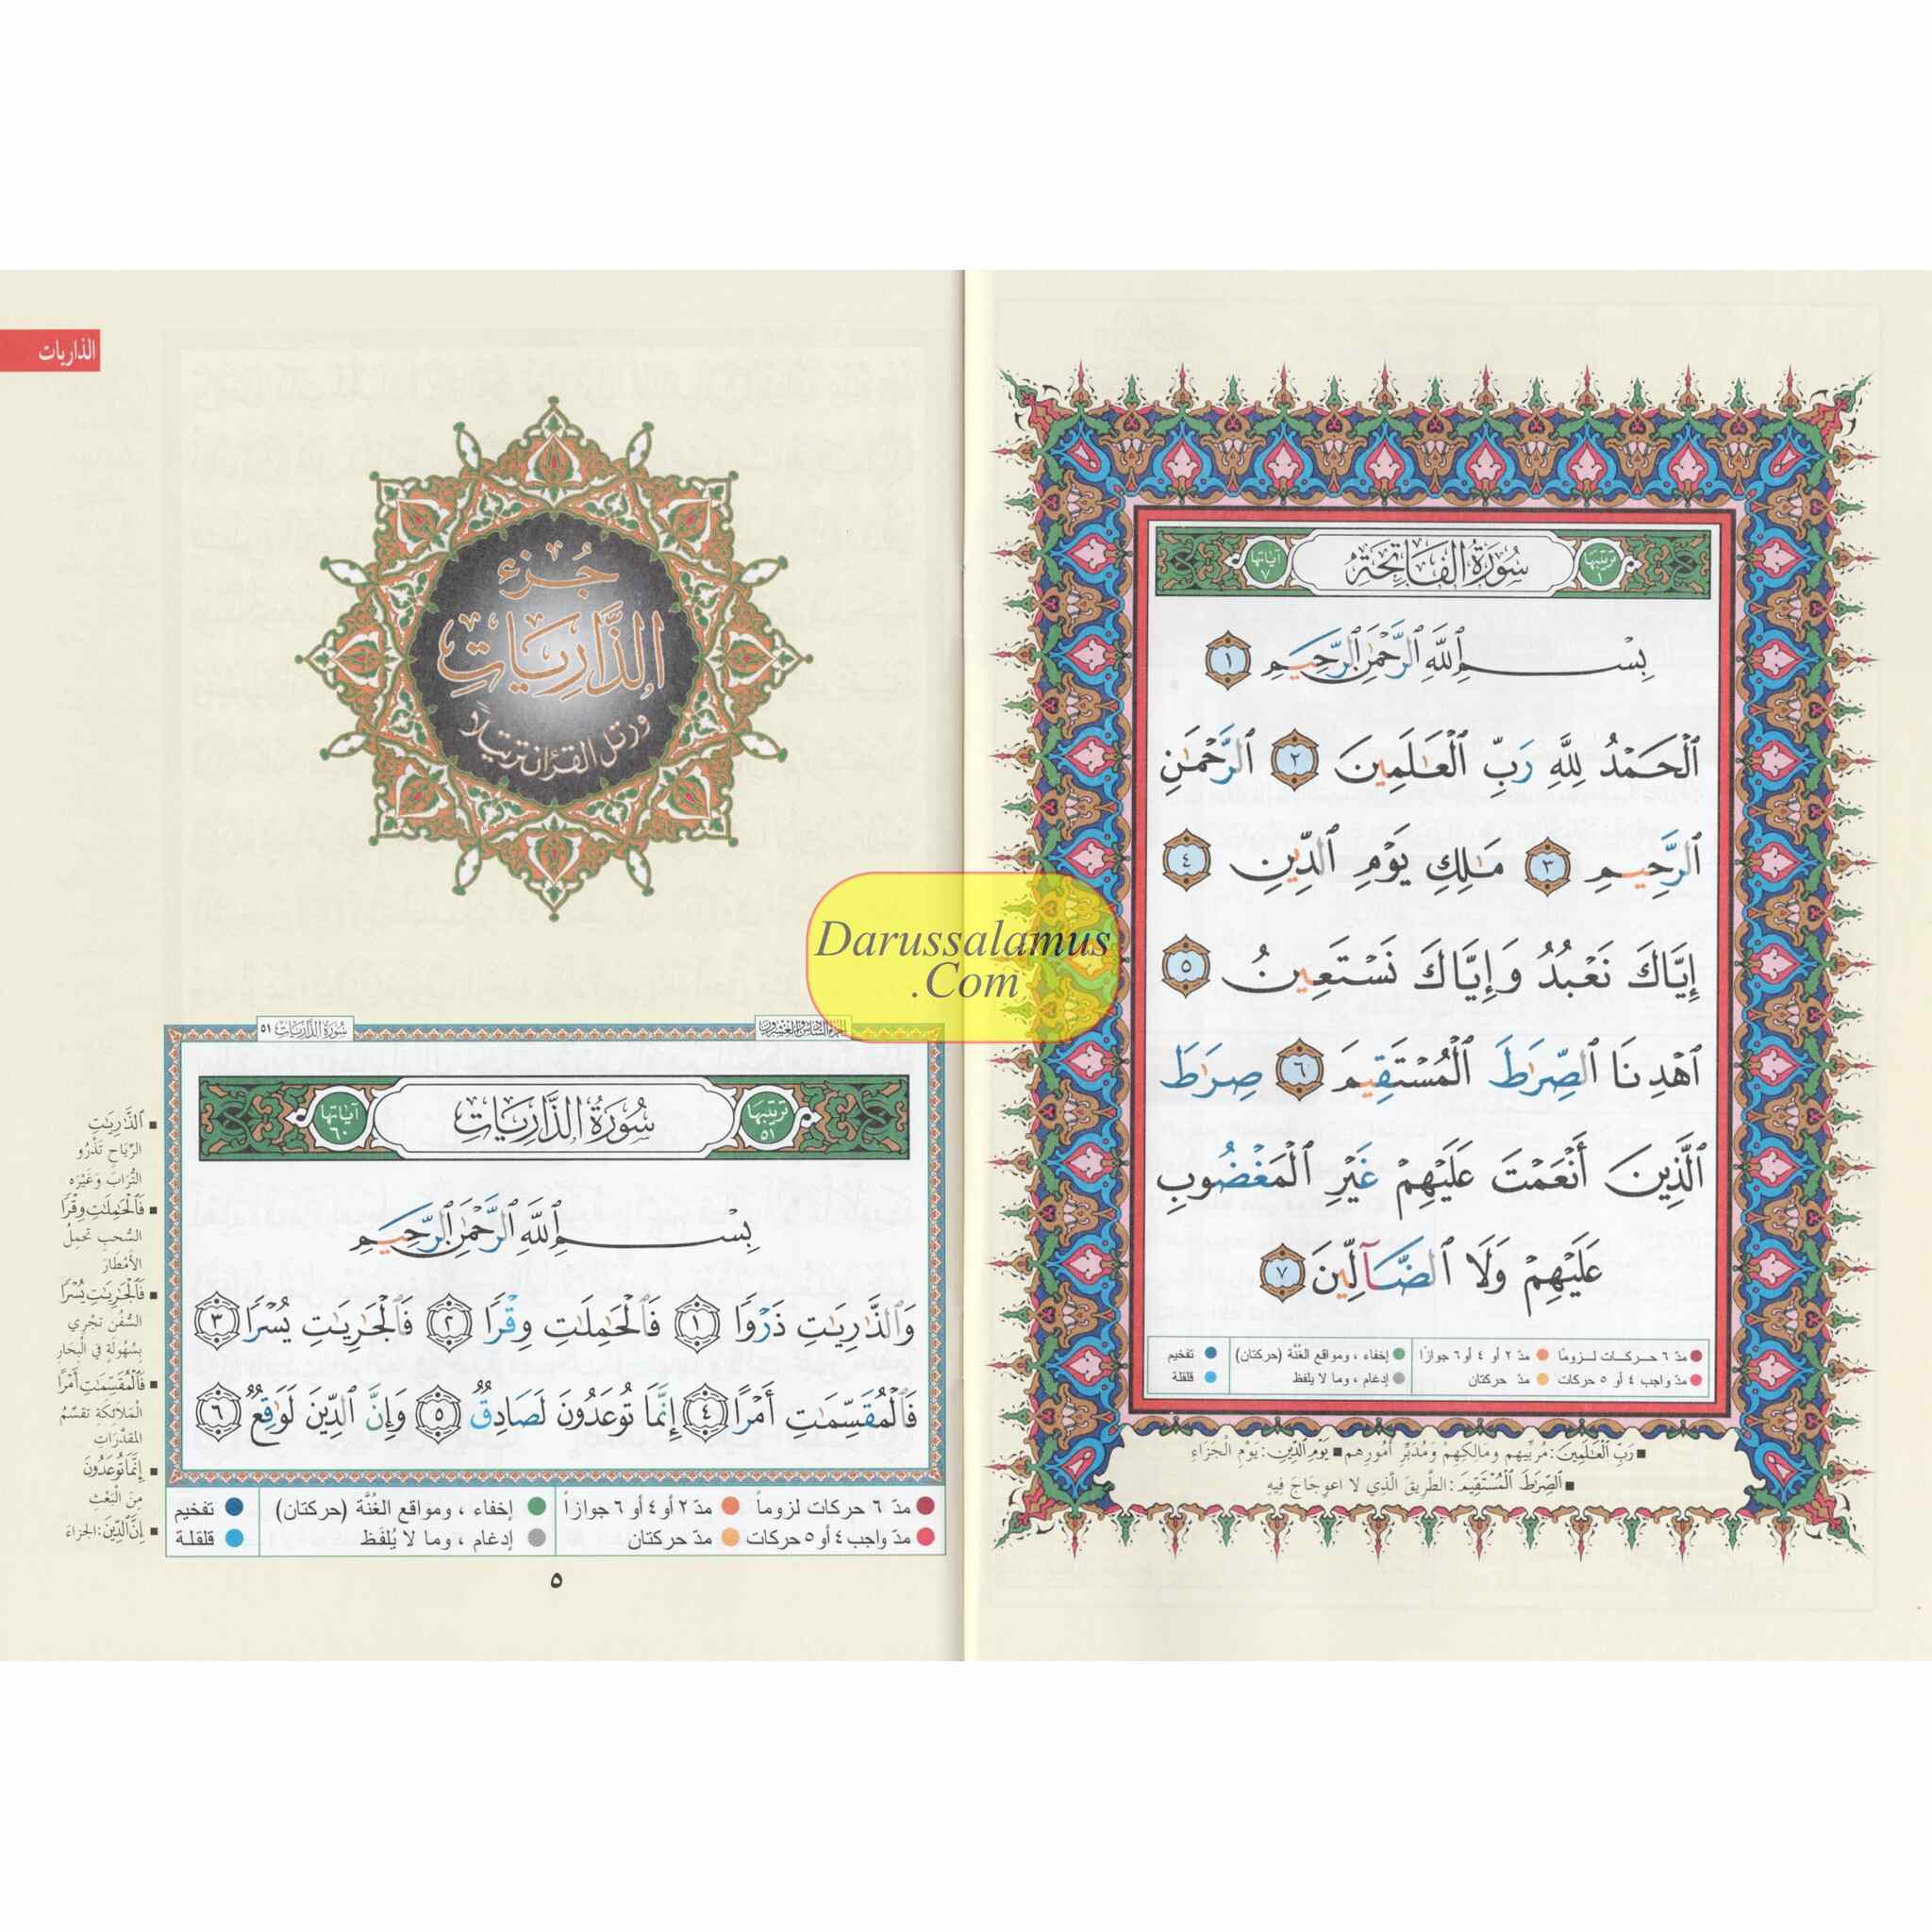 سُورَةُ الفَاتِحَةِ
ترتيبها ١
آياتها ٧
بِسْمِ ٱللَّهِ ٱلرَّحْمَٰنِ ٱلرَّحِيمِ ١
ٱلْحَمْدُ لِلَّهِ رَبِّ ٱلْعَٰلَمِينَ ٢ ٱلرَّحْمَٰنِ
ٱلرَّحِيمِ ٣ مَٰلِكِ يَوْمِ ٱلدِّينِ ٤
إِيَّاكَ نَعْبُدُ وَإِيَّاكَ نَسْتَعِينُ ٥
ٱهْدِنَا ٱلصِّرَٰطَ ٱلْمُسْتَقِيمَ ٦ صِرَٰطَ
ٱلَّذِينَ أَنْعَمْتَ عَلَيْهِمْ غَيْرِ ٱلْمَغْضُوبِ
عَلَيْهِمْ وَلَا ٱلضَّآلِّينَ ٧
مدّ ٦ حركات لزوماً مدّ ٢ أو ٤ أو ٦ جوازاً إخفاء ، ومواقع الغُنَّة (حركتان) تفخيم
مدّ واجب ٤ أو ٥ حركات مدّ حركتان إدغام ، وما لا يلفظ قلقلة
رَبِّ ٱلْعَٰلَمِينَ: مُرَبِّيهِم ومَالِكِهِمْ وَمُدَبِّرِ أُمُورِهِم يَوْمِ ٱلدِّينِ: يَوْمِ الْجَزَاءِ
ٱلصِّرَٰطَ ٱلْمُسْتَقِيمَ: الطَّرِيقَ الَّذِي لا اعوِجَاجَ فِيهِ
الذاريات
جُزء
الذَّارِيَاتِ
ورتل القرءان ترتيلاً
Darussalamus
.Com
الجزء السادس والعشرون
سُورَة الذَّارِيَات ٥١
سُورَةُ الذَّارِيَاتِ
ترتيبها ٥١
آياتها ٦٠
بِسْمِ ٱللَّهِ ٱلرَّحْمَٰنِ ٱلرَّحِيمِ
وَٱلذَّٰرِيَٰتِ ذَرْوًا ١ فَٱلْحَٰمِلَٰتِ وِقْرًا ٢ فَٱلْجَٰرِيَٰتِ يُسْرًا ٣
فَٱلْمُقَسِّمَٰتِ أَمْرًا ٤ إِنَّمَا تُوعَدُونَ لَصَادِقٌ ٥ وَإِنَّ ٱلدِّينَ لَوَٰقِعٌ ٦
مدّ ٦ حركات لزوماً مدّ ٢ أو ٤ أو ٦ جوازاً إخفاء ، ومواقع الغُنَّة (حركتان) تفخيم
مدّ واجب ٤ أو ٥ حركات مدّ حركتان إدغام ، وما لا يُلفَظ قلقلة
ٱلذَّٰرِيَٰتِ
الرِّيَاحِ تَذْرُو
التُّرَابَ وَغَيْرَه
فَٱلْحَٰمِلَٰتِ وِقْرًا
السُّحبِ تحمِلُ
الأَمْطَارَ
فَٱلْجَٰرِيَٰتِ يُسْرًا
السُّفُنِ تجْرِي
بِسُهُولَةٍ فِي الْبِحَارِ
فَٱلْمُقَسِّمَٰتِ أَمْرًا
الْمَلائِكَةِ تقسِّمُ
المقدَّرَاتِ
إِنَّمَا تُوعَدُونَ
مِنَ الْبَعْثِ
إِنَّ ٱلدِّينَ: الجزاءَ
٥